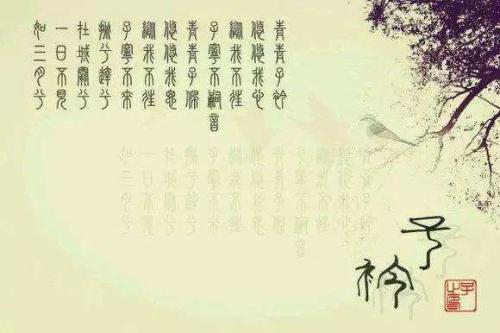 青青子衿
悠悠我心
縱我不往
子寧不嗣音
青青子佩
悠悠我思
縱我不往
子寧不來
挑兮達兮
在城闕兮
一日不見
如三月兮
子衿